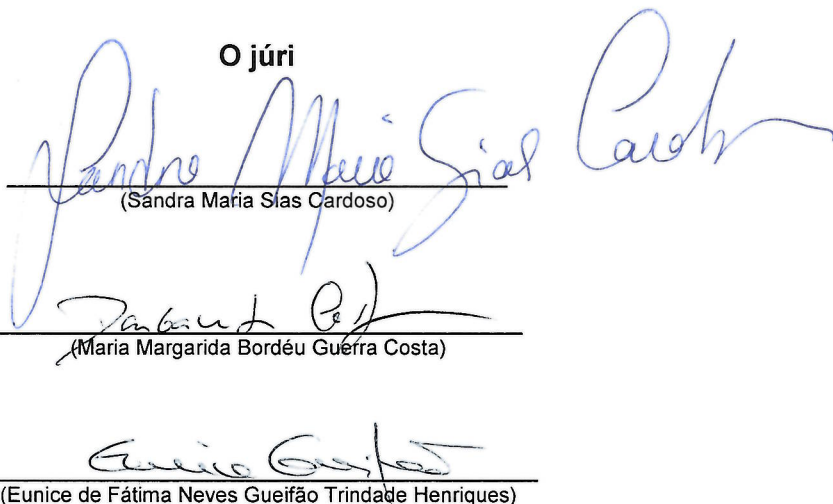 O júri
Sandra Maria Sias Cardoso
(Sandra Maria Sias Cardoso)
Margarida Costa
(Maria Margarida Bordéu Guerra Costa)
Eunice Gueifão
(Eunice de Fátima Neves Gueifão Trindade Henriques)